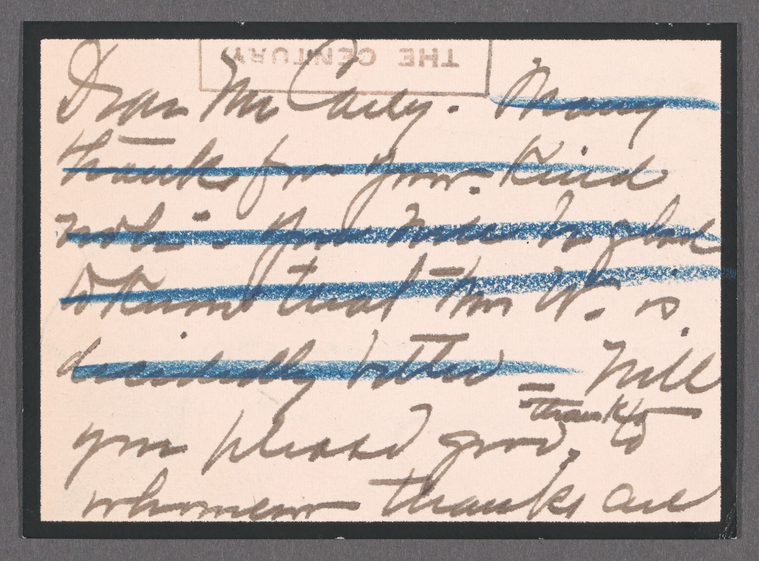 THE CENTURY
Dear Mr Carey. Many
thanks for your kind
note. You will be glad
to know that Mrs W. is
decidedly better Will
you please give, thanks
to
whomever thanks are